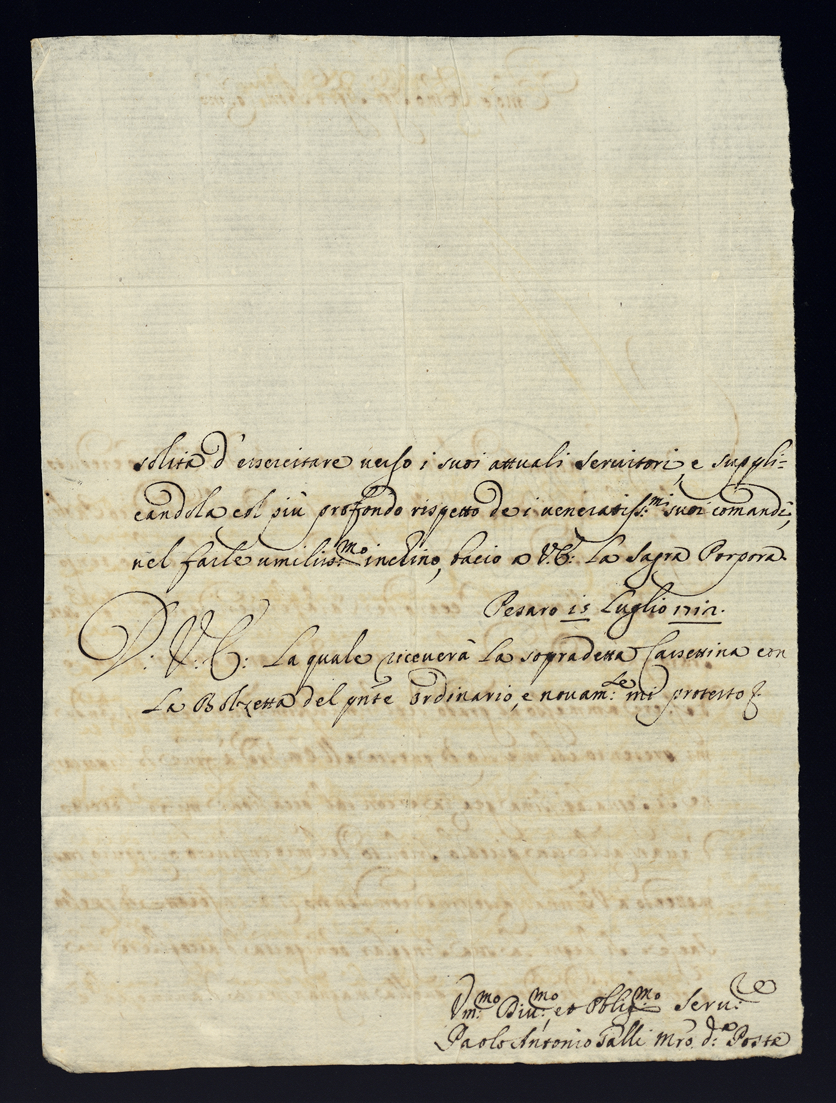 solita d'essercitare verso i suoi attuali servitori, e suppli=
candola col più profondo rispetto de i veneratiss:mi suoi comandi,
nel farle umiliss:mo inchino, bacio a V.E: La Sagra Porpora.
Pesaro 15 Luglio 1712.
D: V: E: La quale riceverà La sopradetta Cassettina con
La Bolzetta del pnte Ordinario, e novam:te mi protesto
Um:mo Div:mo, et Oblig:mo Serv:re
Paolo Antonio Galli Mro. d:e Poste